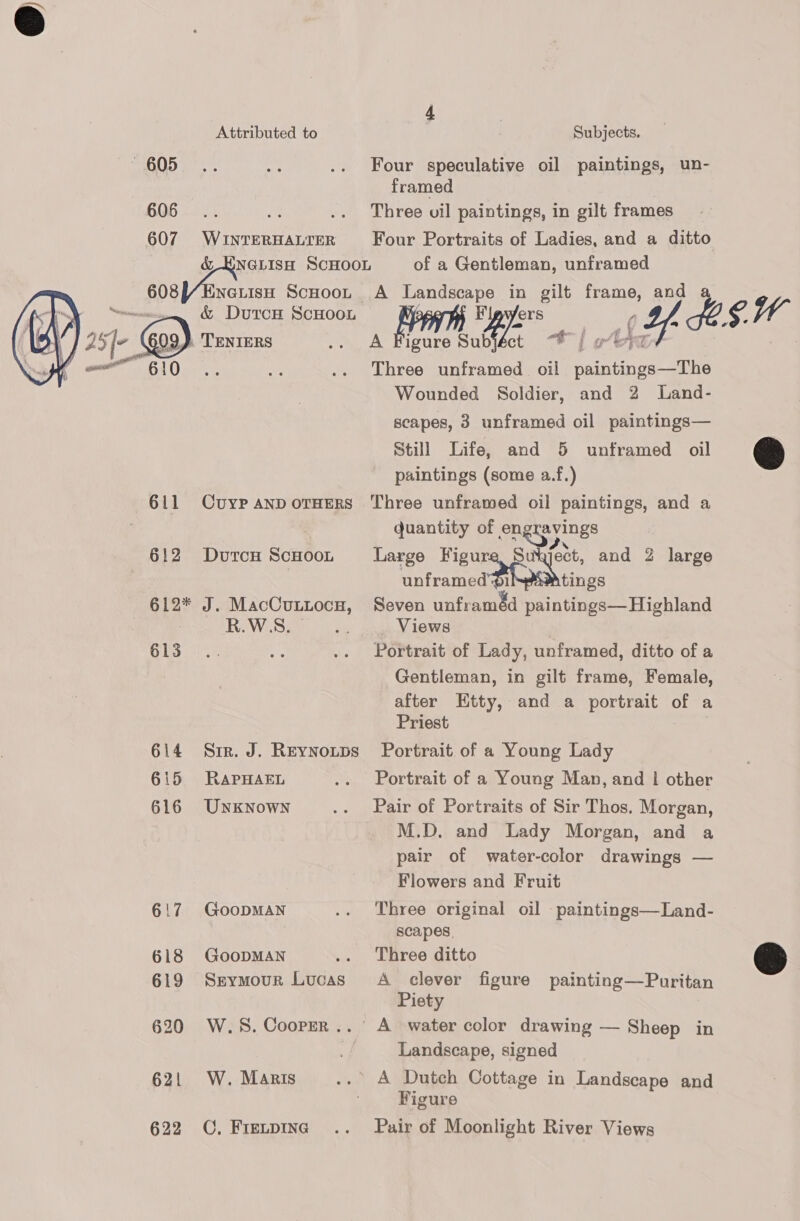 4
Attributed to Subjects.
605 .. .. .. Four speculative oil paintings, un-
framed
606 .. .. .. Three oil paintings, in gilt frames
607 WINTERHALTER Four Portraits of Ladies, and a ditto
& ENGLISH SCHOOL of a Gentleman, unframed
608 ENGLISH SCHOOL A Landscape in gilt frame, and a
& DUTCH SCHOOL Flowers
25/- 609 TENIERS .. A Figure Subject
610 .. .. .. Three unframed oil paintings—The
Wounded Soldier, and 2 Land-
scapes, 3 unframed oil paintings—
Still Life, and 5 unframed oil
paintings (some a.f.)
611 CUYP AND OTHERS Three unframed oil paintings, and a
quantity of engravings
612 DUTCH SCHOOL Large Figure Subject, and 2 large
unframed oil paintings
612* J. MACCULLOCH, Seven unframed paintings—Highland
R.W.S. .. Views
613 .. .. .. Portrait of Lady, unframed, ditto of a
Gentleman, in gilt frame, Female,
after Etty, and a portrait of a
Priest
614 SIR. J. REYNOLDS Portrait of a Young Lady
615 RAPHAEL .. Portrait of a Young Man, and 1 other
616 UNKNOWN .. Pair of Portraits of Sir Thos. Morgan,
M.D. and Lady Morgan, and a
pair of water-color drawings —
Flowers and Fruit
617 GOODMAN .. Three original oil paintings—Land-
scapes
618 GOODMAN .. Three ditto
619 SEYMOUR LUCAS A clever figure painting—Puritan
Piety
620 W. S. COOPER .. A water color drawing — Sheep in
Landscape, signed
621 W. MARIS .. A Dutch Cottage in Landscape and
Figure
622 C. FIELDING .. Pair of Moonlight River Views